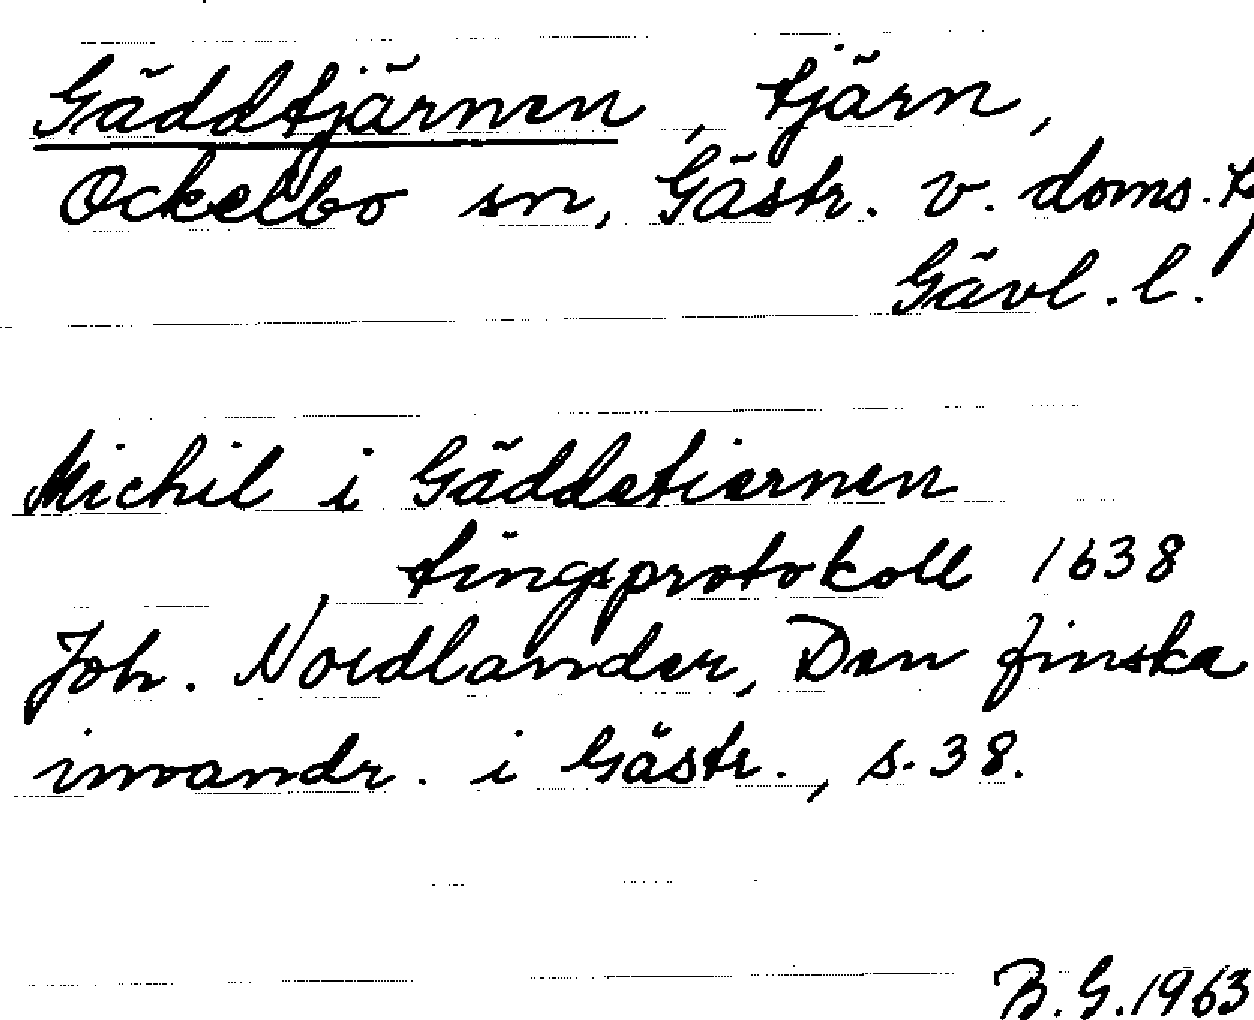 Gäddtjärnen, tjärn,
Ockelbo sn, Gästr. v. doms.
Gävl. l.
Michil i Gäddetiernen
tingsprotokoll 1638
Joh. Nordlander, Den finska
invandr. i Gästr., s. 38.
B.G. 1963